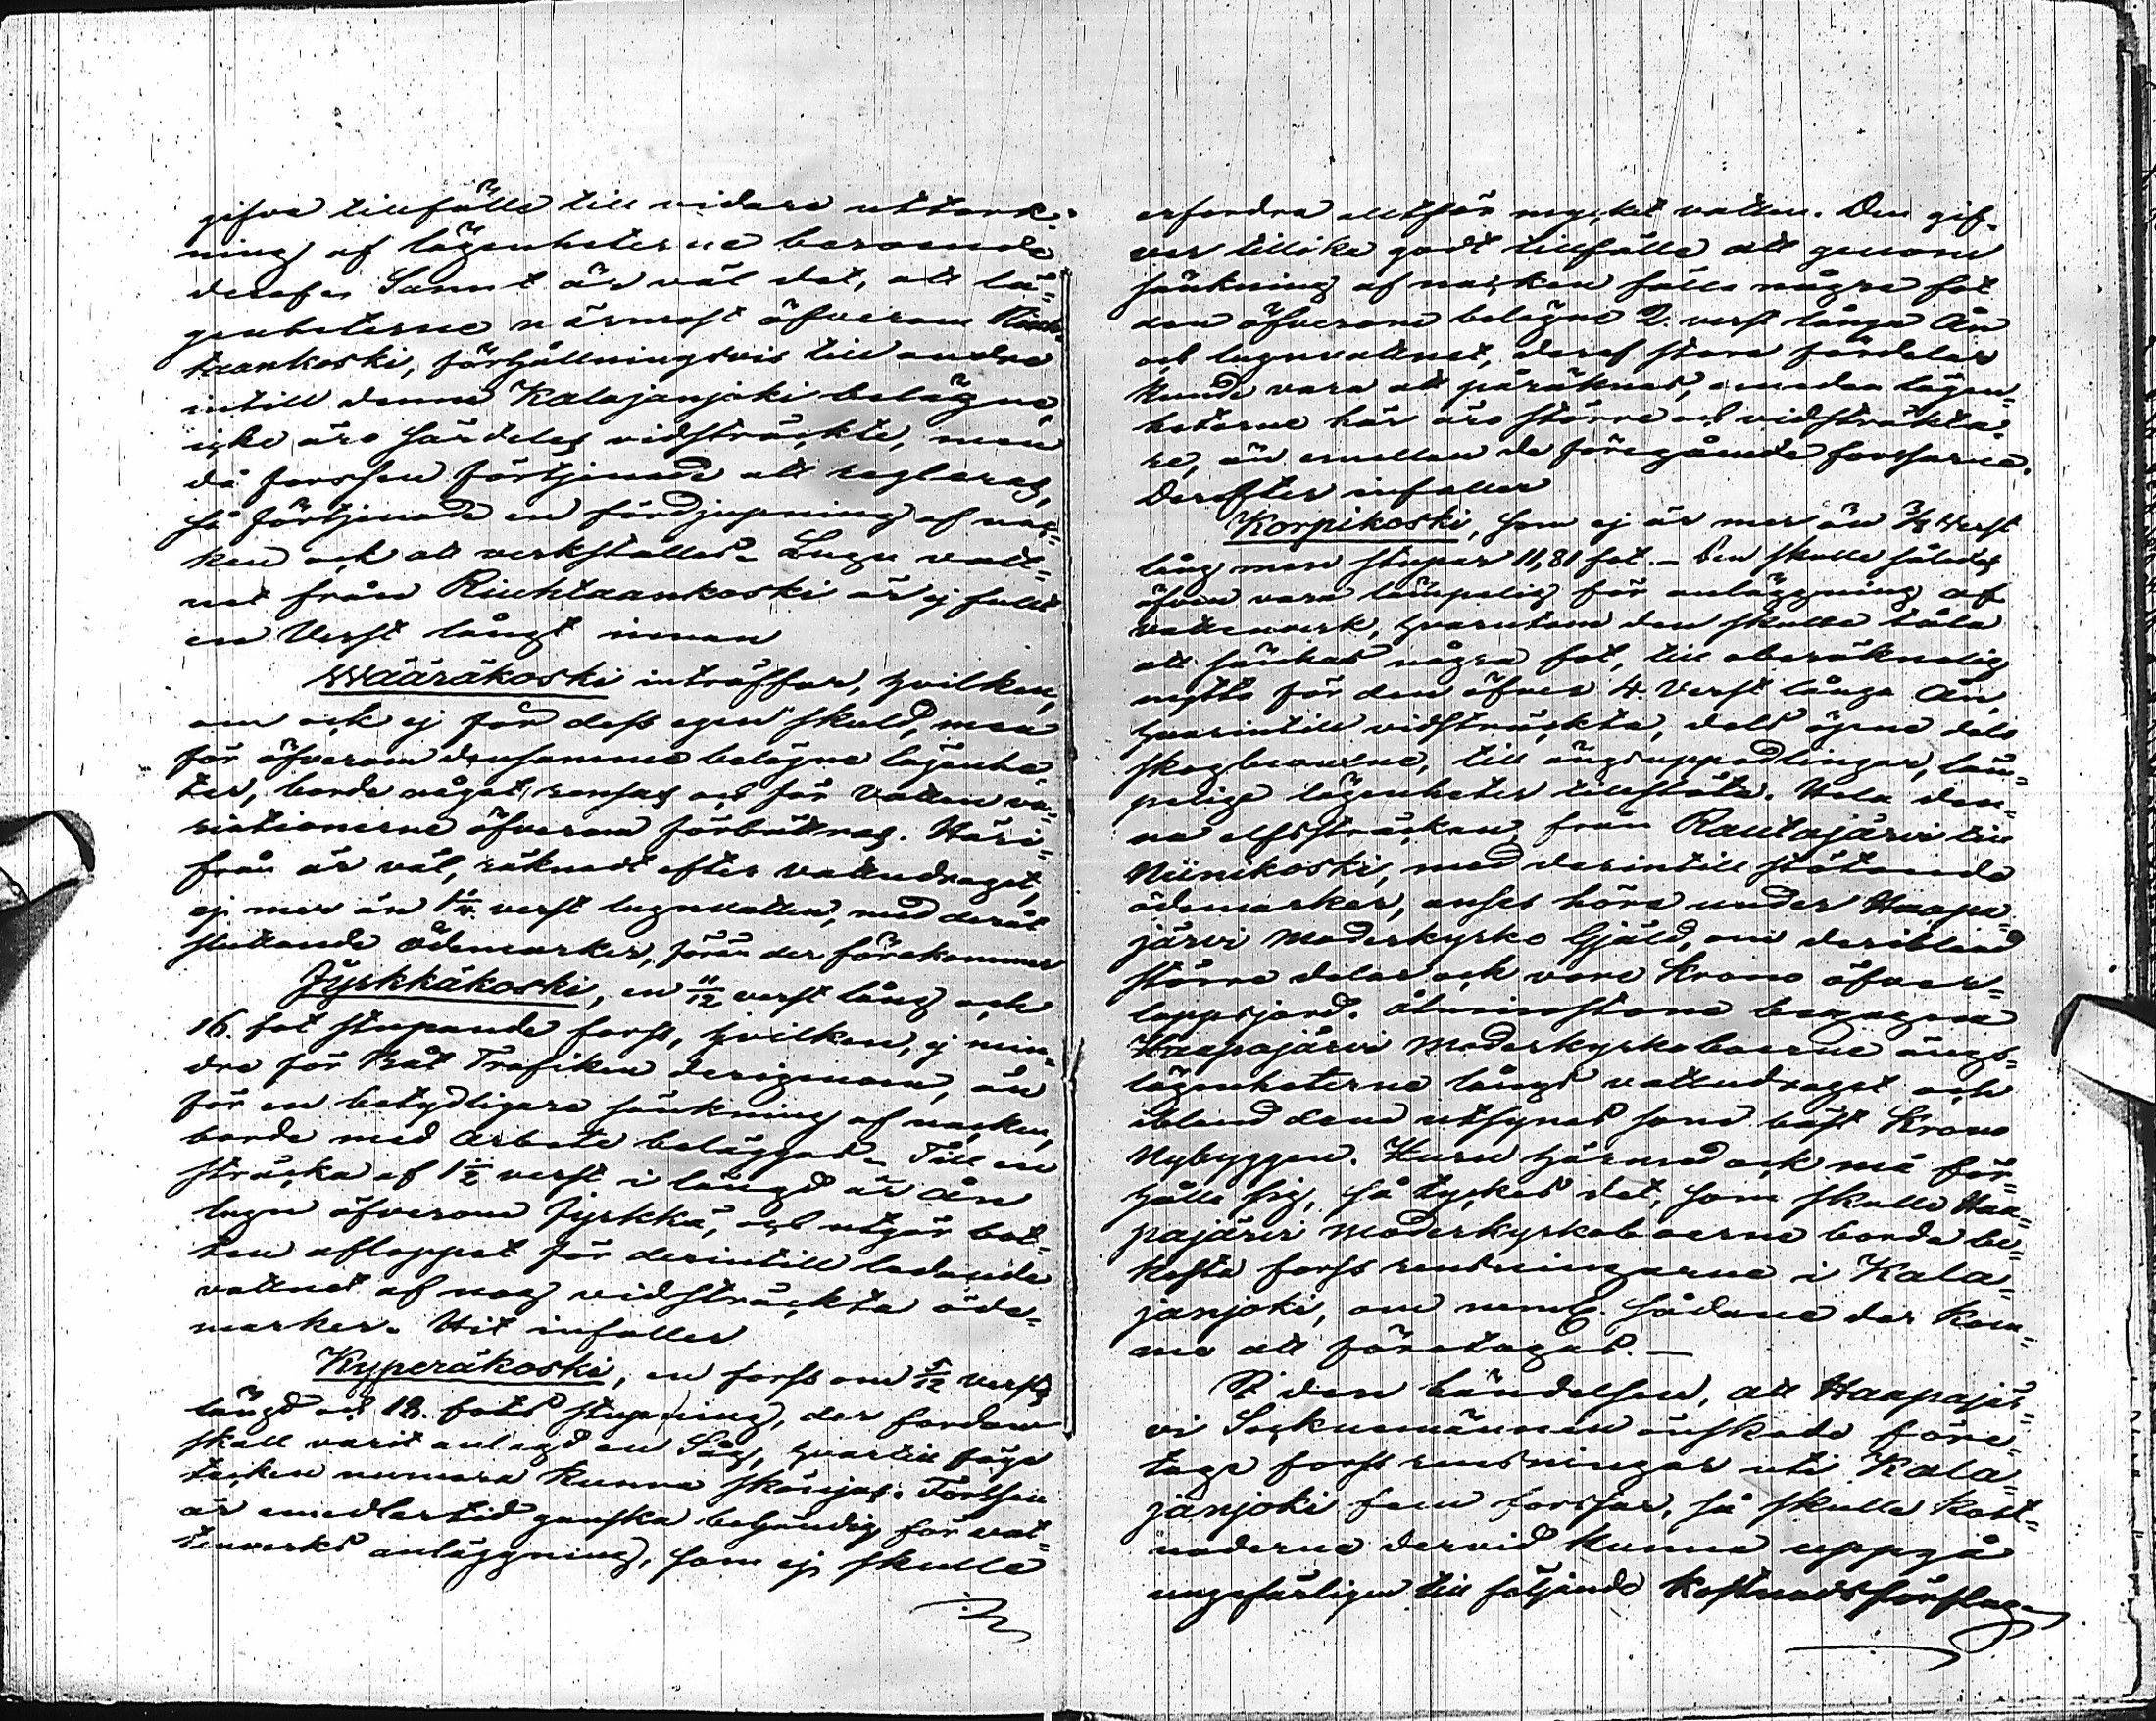 gifva tillfälle till vidare uttork-
ning af lägenheterne beroende
deraf. Sannt är väl det, att lä-
genheterne närmast öfverom Riuh-
taankoski, förhållningsvis till andra
intill denna Kalajanjoki belägne,
icke äro särdeles vidsträckte, men
då forssen förtjenade att regleras,
så förtjenade en fördjupning af nac-
ken ock att verkställas. Lugn vatt-
net från Riuhtaankoski är ej fullt
en Verst långt innan
Wääräkoski inträffar, hvilken,
om ock ej för dess egen skuld, men
för öfverom densamma belägne lägenhe-
ter, borde något rensas och för vatten va-
riationerne öfverom förbättras. Häri-
från är väl, räknadt efter vattudraget,
ej mer än 1 1/4 verst lugnvatten, med deråt
sluttande ödemarker, förän der förekommer
Jyrkkäkoski, en 11/12 verst lång och
16. fot stupande forss, hvilken, ej min-
dre för Båt Trafiken derigenom, än
för en betydligare sänkning af nacken,
borde med arbete beläggas. Till en
sträcka af 1 1/2 verst i längd är ån
lugn öfverom Jyrkkä, och utgör bot-
ten afloppet för derintill ledande
vattnet af nog vidsträckta öde-
marker. Hit infaller
Kyperäkoski, en forss om 5/12 versts
längd och 18. fots stupning, der fordom
skall varit anlagd en Såg, hvartill föga
tecken numera kunna skönjas. Forssen
är emedlertid ganska behändig för vat-
tenverks anläggning, som ej skulle
erfordra alltför mycket vatten. Den gif-
ver tillika godt tillfälle att genom
sänkning af nacken fälla några fot
den öfverom belägne 2. verst långa Ån
och lugnvattnet, deraf stora fördelar
kunde vara att påräknas, emedan lägen-
heterne här äro större och vidsträkta-
re, än emellan de föregående forssarne.
Derefter infaller
Korpikoski, som ej är mer än Verst
lång men stupar 11,81 fot. – Den skulle således
äfven vara lämpelig för anläggning af
vattenverk, hvarutom den skulle tåla
att sänkas några fot, till oberäknelig
nytta för den öfver 4. Verst långa Ån,
hvarintill vidsträckta, dels öpne dels
skogbevuxne, till ängsuppodlingar, läm-
pelige lägenheter tillstöta. Hela den-
na elfsträckan från Rautajärvi till
Niinikoski, med derintill stötande
ödemarker, anses höra under Haapa-
järvi Moderkyrko Gjäld, om deribland
större delar ock vore Krono öfver-
loppsjord. Åtminstone begagna
Haapajärvi Moderkyrkoboerne ängs-
lägenheterne långs vattudraget och
ibland dem utsynes som bäst Krono
Nybyggen. Huru härmed ock må för-
hålla sig, så tyckes det, som skulle Haa-
pajärvi Moderkyrkoboerne borde be-
kosta forss rensningarne i Kala-
janjoki, om neml. sådane der kom-
me att företagas. –
I den händelsen, att Haapajär-
vi Socknemännen önskade före-
taga forss rensningar uti Kala-
janjoki fem forssar, så skulle kost-
naderna dervid kunna uppgå
ungefärligen till följande kostnadsförslag.